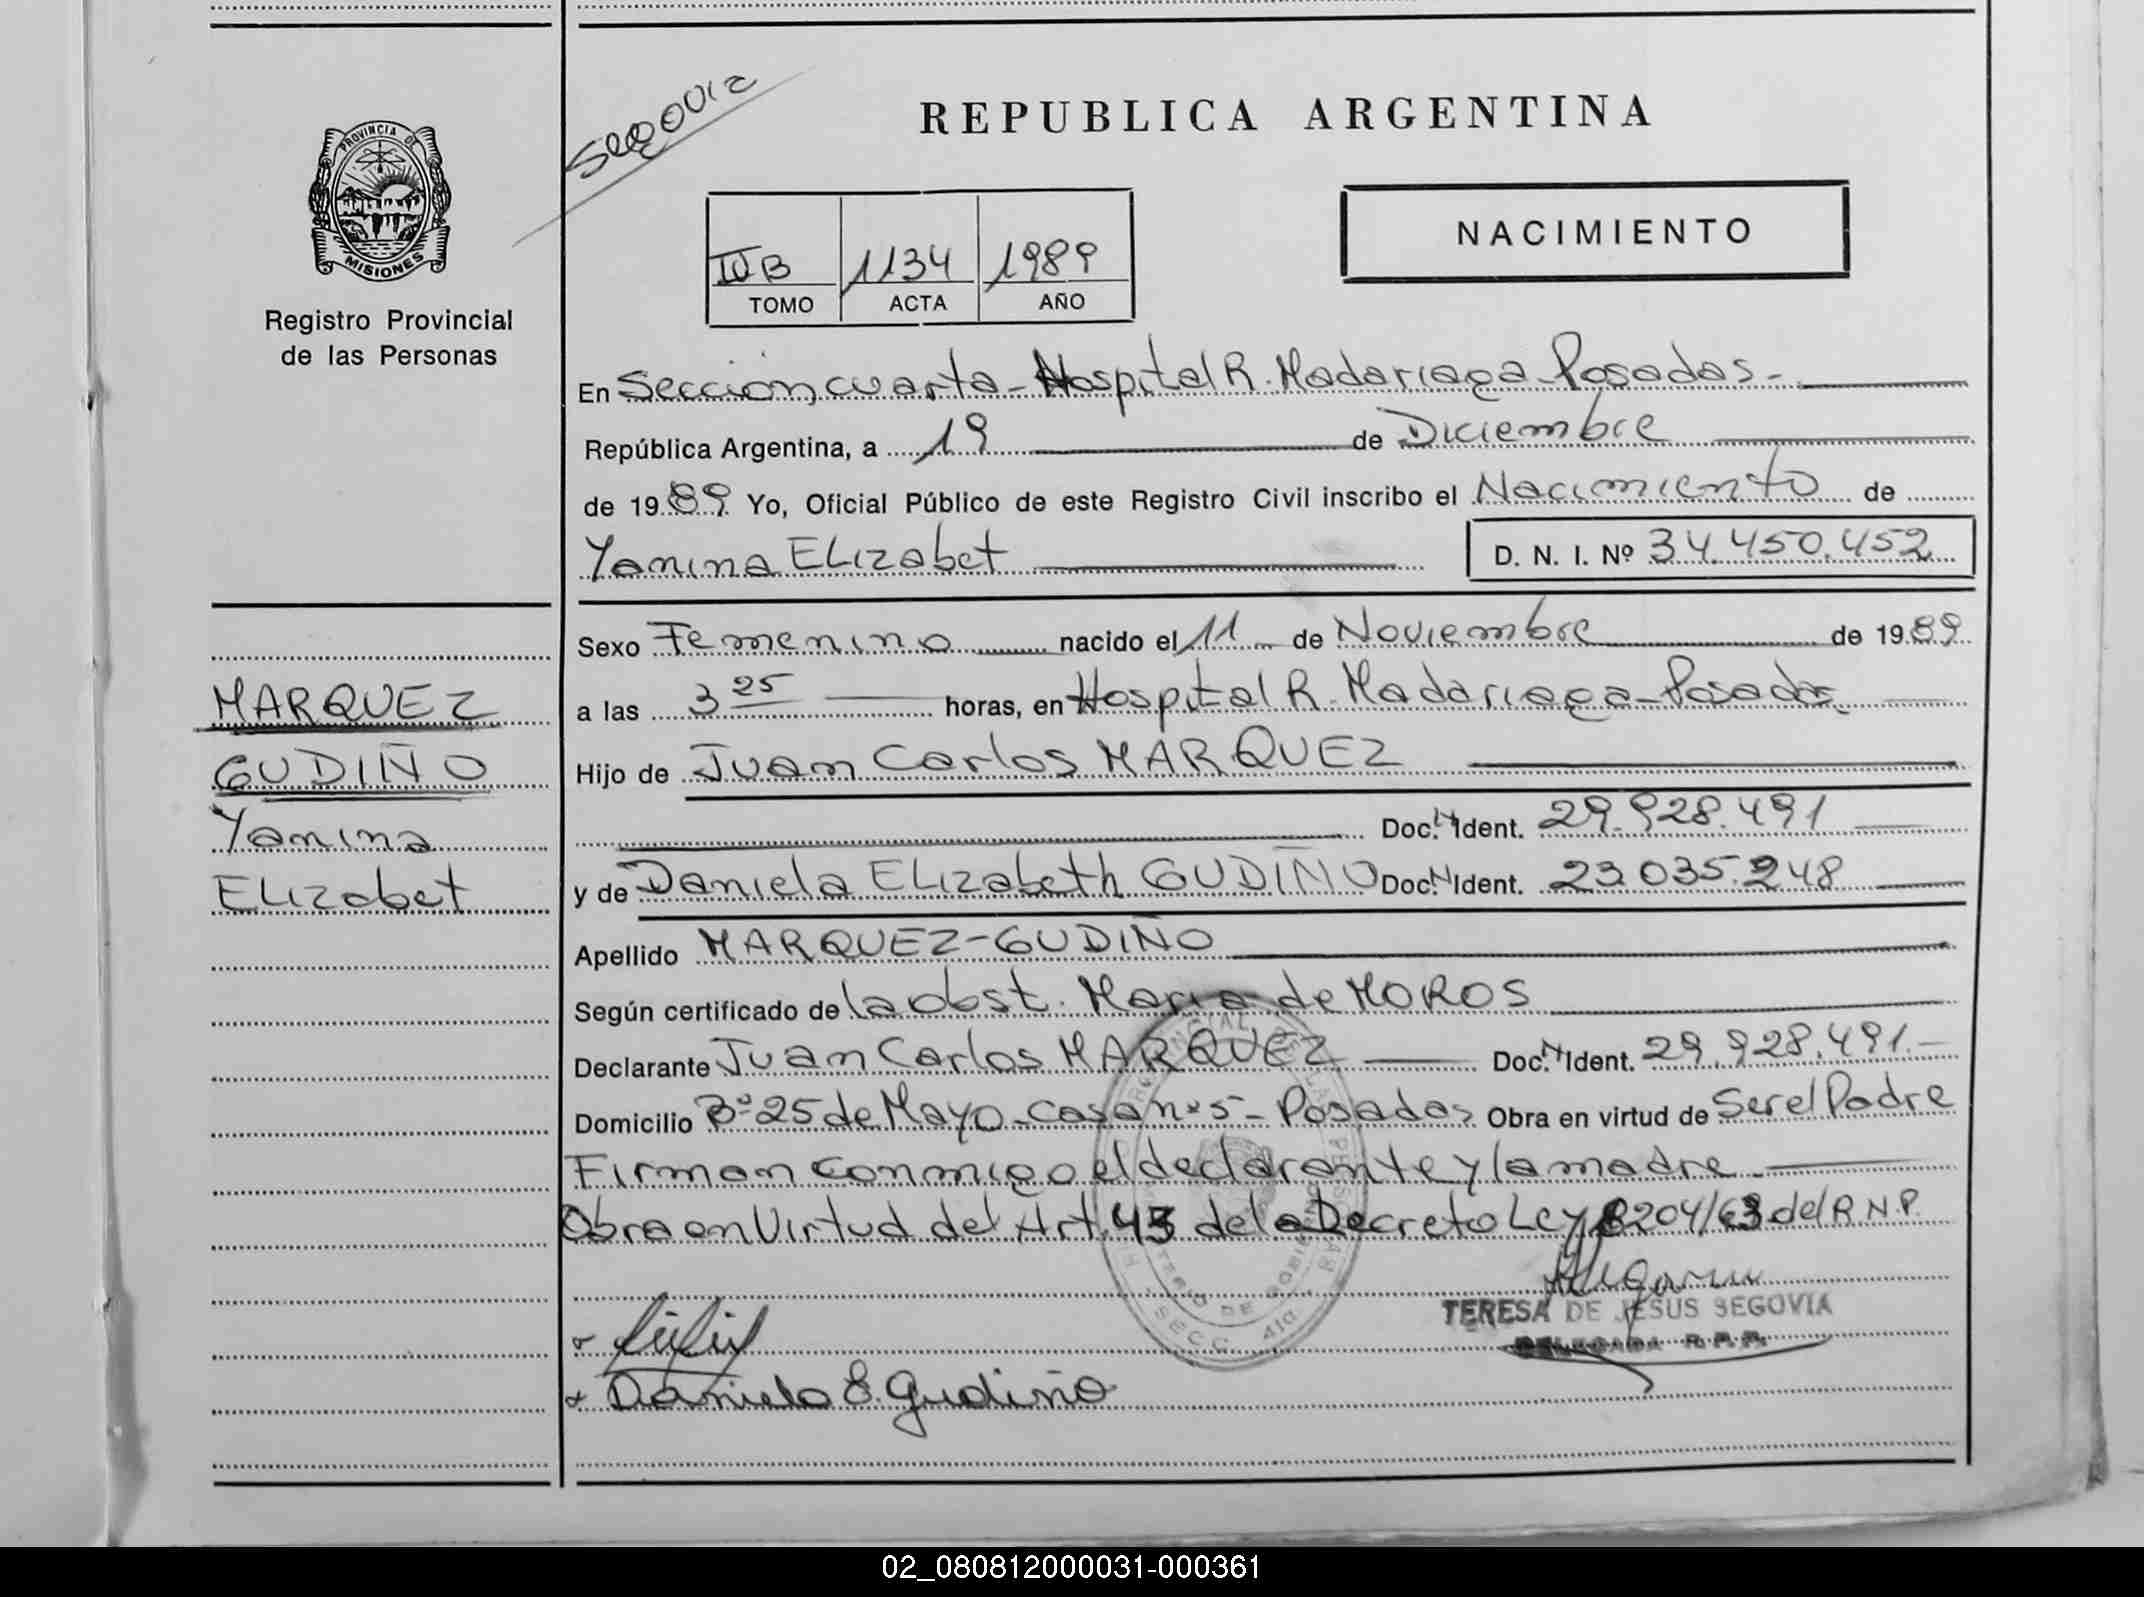 Segovia
REPUBLICA ARGENTINA
PROVINCIA DE
MISIONES
Registro Provincial
de las Personas
NACIMIENTO
IVB 1134 1989
TOMO ACTA AÑO
En Sección cuarta - Hospital R. Madariaga - Posadas -
República Argentina, a 19 de Diciembre
de 1989 Yo, Oficial Público de este Registro Civil inscribo el Nacimiento de
Yanina ELizabet D. N. I. Nº 34.450.452
Sexo Femenino nacido el 11 de Noviembre de 1989
a las 3 25 horas, en Hospital R. Madariaga - Posadas.
Hijo de Juan Carlos MARQUEZ
Doc. N Ident. 29.928.491
y de Daniela ELizabeth GUDIÑO Doc. N Ident. 23.035.248
Apellido MARQUEZ-GUDIÑO
Según certificado de la obst. Maria de MOROS
Declarante Juan Carlos MARQUEZ Doc. N Ident. 29.928.491.-
Domicilio Bº 25 de Mayo - casa nº 5 - Posadas Obra en virtud de Ser el Padre
Firman conmigo el declarante y la madre
Obra en Virtud del Art. 45 del Decreto Ley 8204/63 del R.N.P.
TERESA DE JESUS SEGOVIA
DELEGADA R.P.P.
Daniela E. Gudiño
MARQUEZ
GUDIÑO
Yanina
ELizabet
02_080812000031-000361